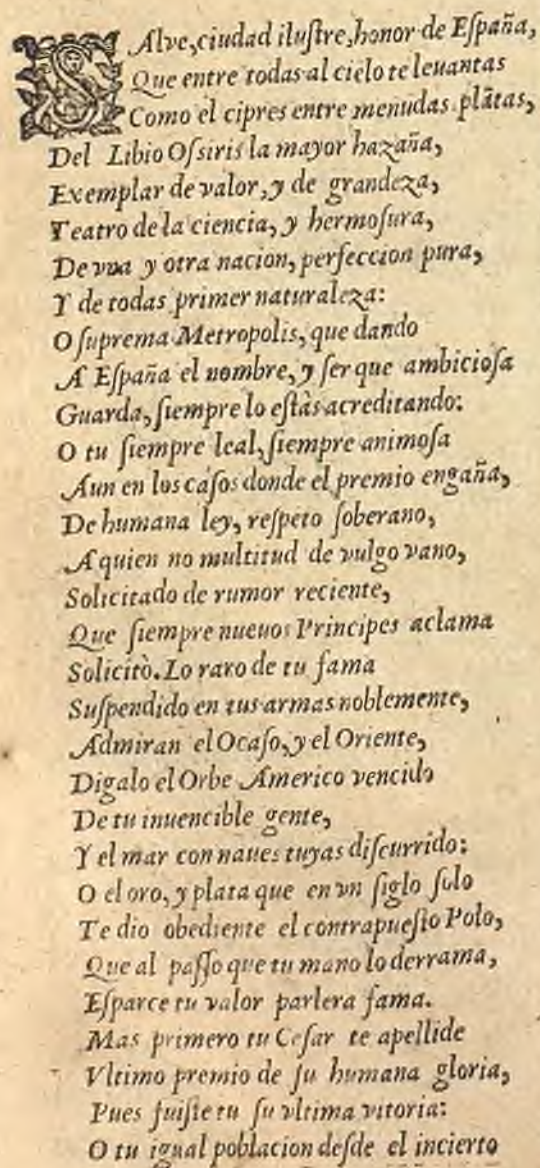 SAlve, ciudad ilustre, honor de España,
Que entre todas al cielo te leuantas
Como el cipres entre menudas plãtas,
Del Libio Ossiris la mayor hazaña,
Exemplar de valor, y de grandeza,
Teatro de la ciencia, y hermosura,
De vna y otra nacion, perfeccion pura,
Y de todas primer naturaleza:
O suprema Metropolis, que dando
A España el nombre, y ser que ambiciosa
Guarda, siempre lo estàs acreditando:
O tu siempre leal, siempre animosa
Aun en los casos donde el premio engaña,
De humana ley, respeto soberano,
A quien no multitud de vulgo vano,
Solicitado de rumor reciente,
Que siempre nueuos Principes aclama
Solicitò. Lo raro de tu fama
Suspendido en tus armas noblemente,
Admiran el Ocaso, y el Oriente,
Digalo el Orbe Americo vencido
De tu inuencible gente,
Y el mar con naues tuyas discurrido:
O el oro, y plata que en vn siglo solo
Te dio obediente el contrapuesto Polo,
Que al passo que tu mano lo derrama,
Esparce tu valor parlera fama.
Mas primero tu Cesar te apellide
Vltimo premio de su humana gloria,
Pues fuiste tu su vltima vitoria:
O tu igual poblacion desde el incierto